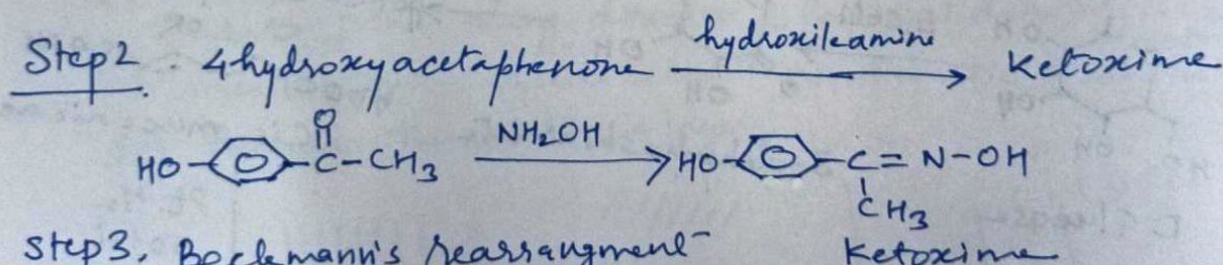 Step2. 4hydroxyacetaphenone hydroxileamine Ketoxime
HO- C-CH3 NH2OH HO- C=N-OH
O
CH3
Step3. Beckmann's rearrangment Ketoxime